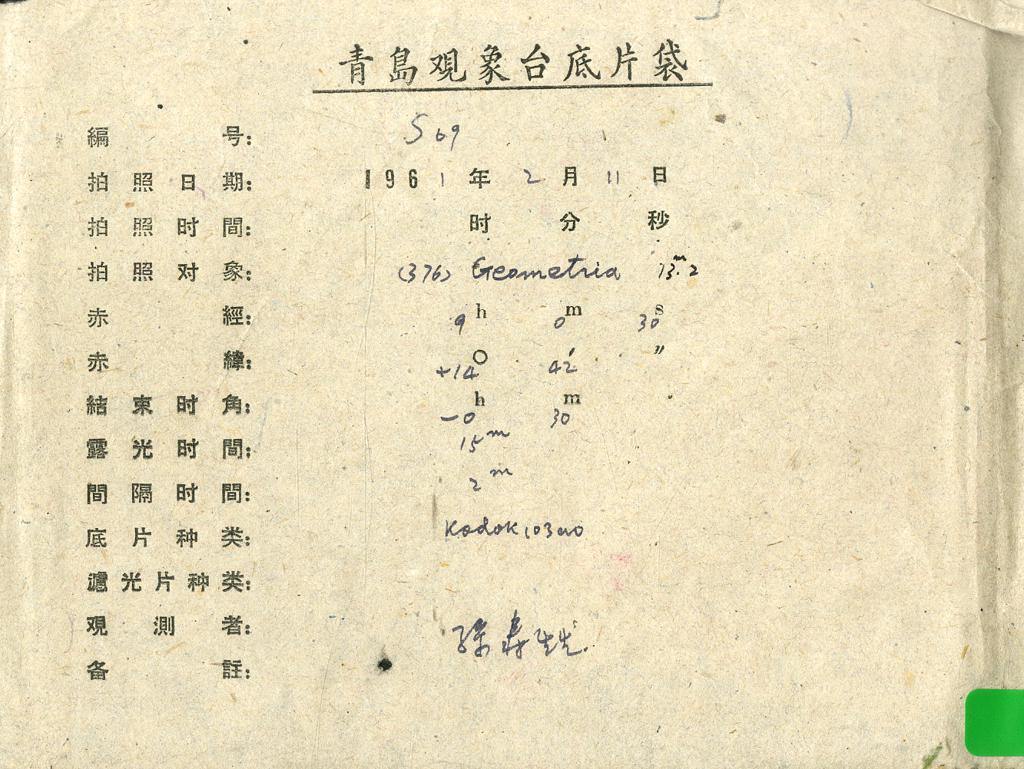 青島观象台底片袋
編 号: S 69
拍照日期: 1961年2月11日
拍照时間: 时 分 秒
拍照对象: (376) Geometria 13.ᵐ2
赤經: 9ʰ 0ᵐ 30ˢ
赤緯: +14° 42′ ″
結束时角: -0ʰ 30ᵐ
露光时間: 15ᵐ
間隔时間: 2ᵐ
底片种类: Kodak 103aO
濾光片种类:
观測者: 孫寿
备註: